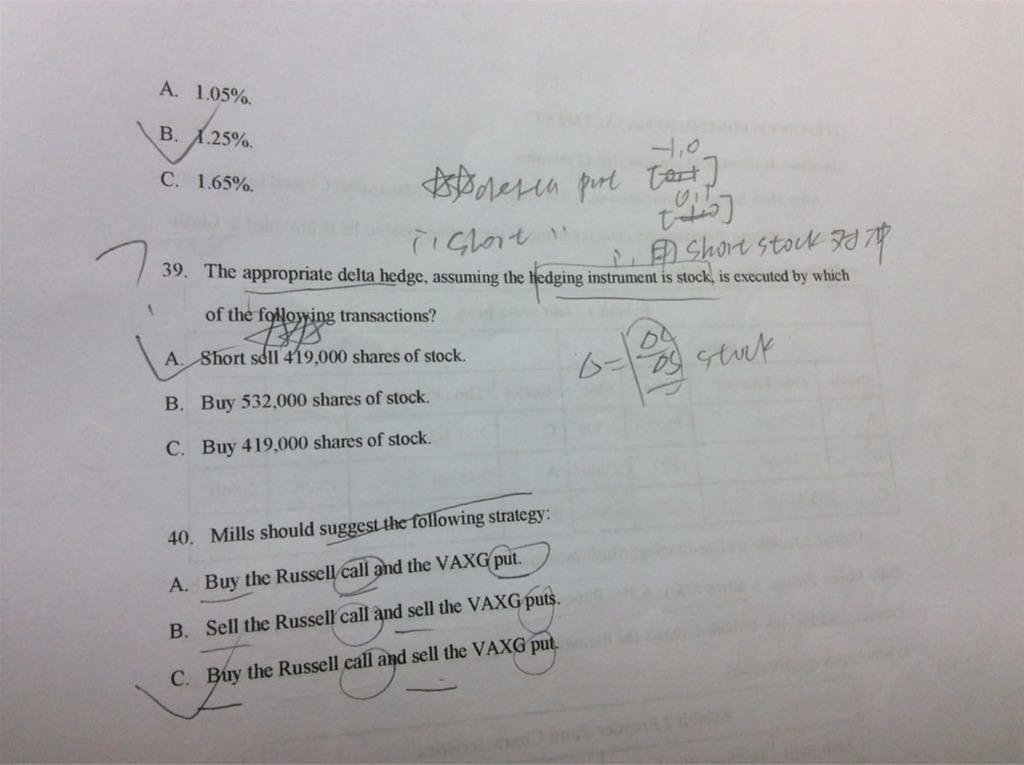 A. 1.05%.
B. 1.25%.
C. 1.65%.
-1,0
put
0,1
"short"
∴ 用 short stock 对冲
39. The appropriate delta hedge, assuming the hedging instrument is stock, is executed by which
of the following transactions?
A. Short sell 419,000 shares of stock.
B. Buy 532,000 shares of stock.
C. Buy 419,000 shares of stock.
stock
40. Mills should suggest the following strategy:
A. Buy the Russell call and the VAXG put.
B. Sell the Russell call and sell the VAXG puts.
C. Buy the Russell call and sell the VAXG put.